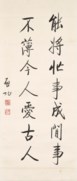 能將忙事成閒事
不薄今人愛古人
启功